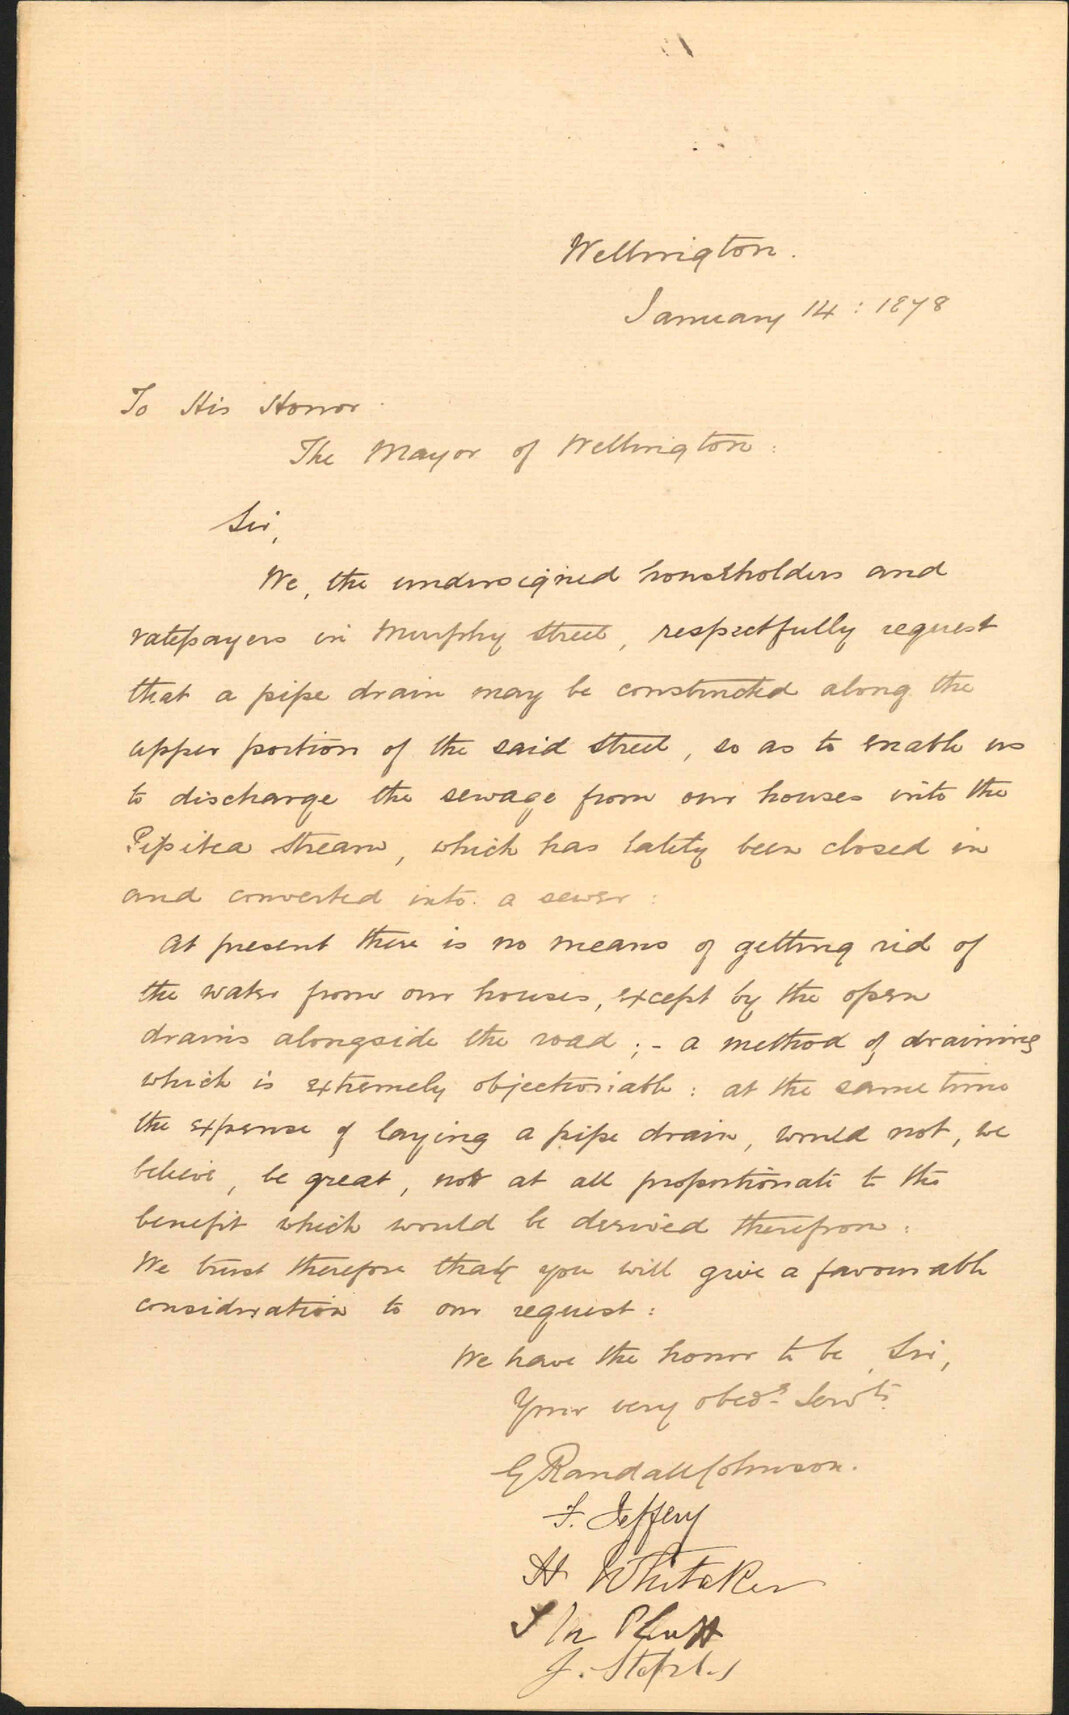 Wellington.
January 14 : 1878
To His Honor
The Mayor of Wellington :
Sir,
We, the undersigned householders and
ratepayers in Murphy Street, respectfully request
that a pipe drain may be constructed along the
upper portion of the said street, so as to enable us
to discharge the sewage from our houses into the
Pipitea stream, which has lately been closed in
and converted into a sewer :
At present there is no means of getting rid of
the water from our houses, except by the open
drains alongside the road ; - a method of draining
which is extremely objectionable : at the same time
the expense of laying a pipe drain, would not, we
believe, be great, not at all proportionate to the
benefit which would be derived therefrom :
We trust therefore that you will give a favourable
consideration to our request :
We have the honor to be, Sir,
Your very obed.t Serv.ts
G Randall Johnson.
F. Jeffery
H Whitaker
J. Staples